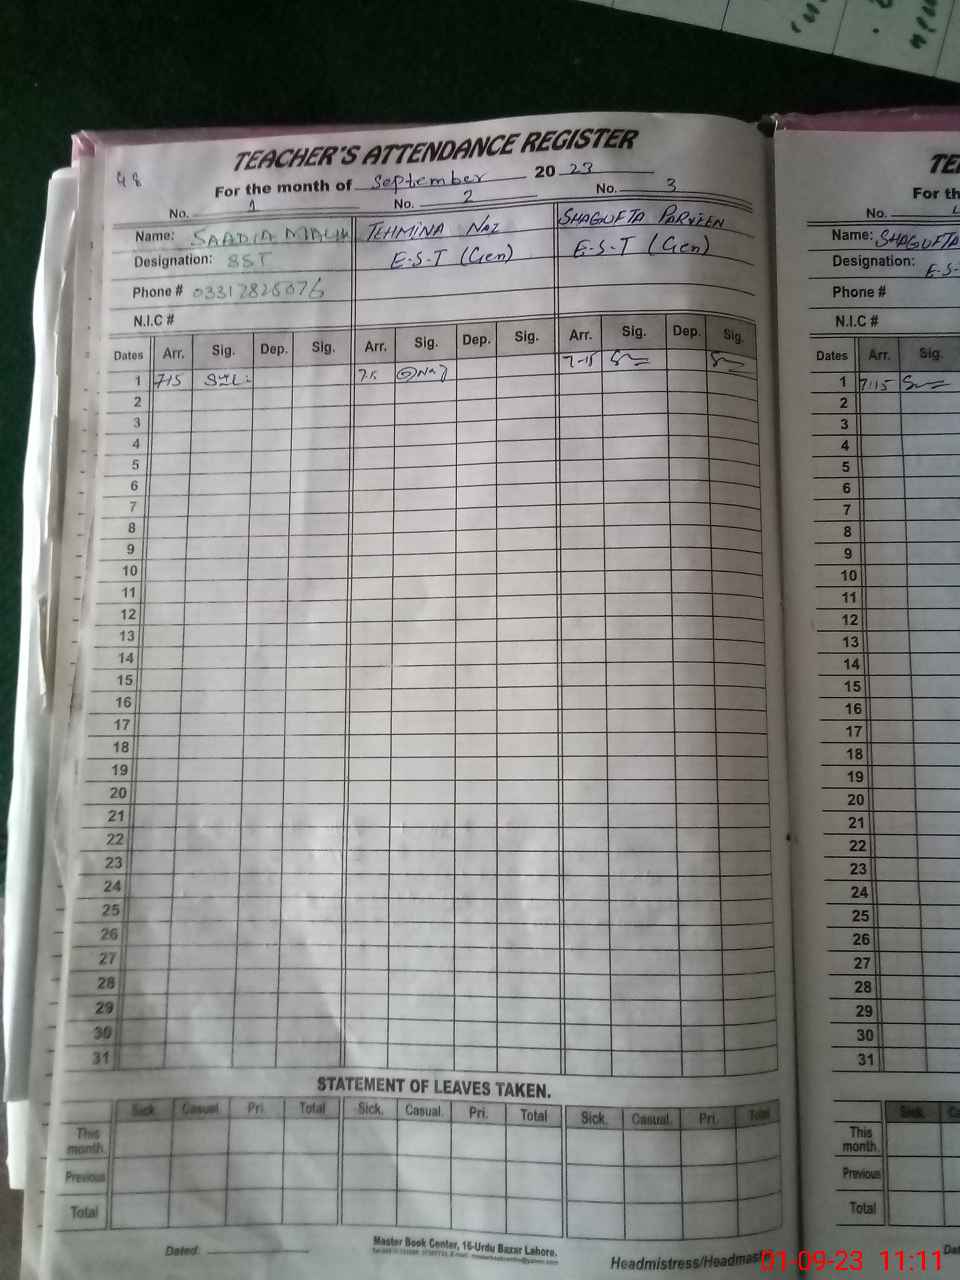 TEACHER'S ATTENDANCE REGISTER
48
For the month of September 20 23
No. 1 No. 2 No. 3
Name: SAADIA MALIK TEHMINA NAZ SHAGUFTA PARVEEN
Designation: SST E-S-T (Gen) E-S-T (Gen)
Phone # 03312826076
N.I.C #
Dates Arr. Sig. Dep. Sig. Arr. Sig. Dep. Sig. Arr. Sig. Dep. Sig.
7-15
1 7-15
2
3
4
5
6
7
8
9
10
11
12
13
14
15
16
17
18
19
20
21
22
23
24
25
26
27
28
29
30
31
STATEMENT OF LEAVES TAKEN.
Sick. Casual. Pri. Total Sick. Casual. Pri. Total Sick. Casual. Pri. Total
This month.
Previous
Total
Dated:
Master Book Center, 16-Urdu Bazar Lahore.
Headmistress/Headmaster
No.
Name: SHAGUFTA
Designation:
Phone #
N.I.C #
Dates Arr. Sig.
1 7:15
2
3
4
5
6
7
8
9
10
11
12
13
14
15
16
17
18
19
20
21
22
23
24
25
26
27
28
29
30
31
Sick.
This month.
Previous
Total
01-09-23 11:11